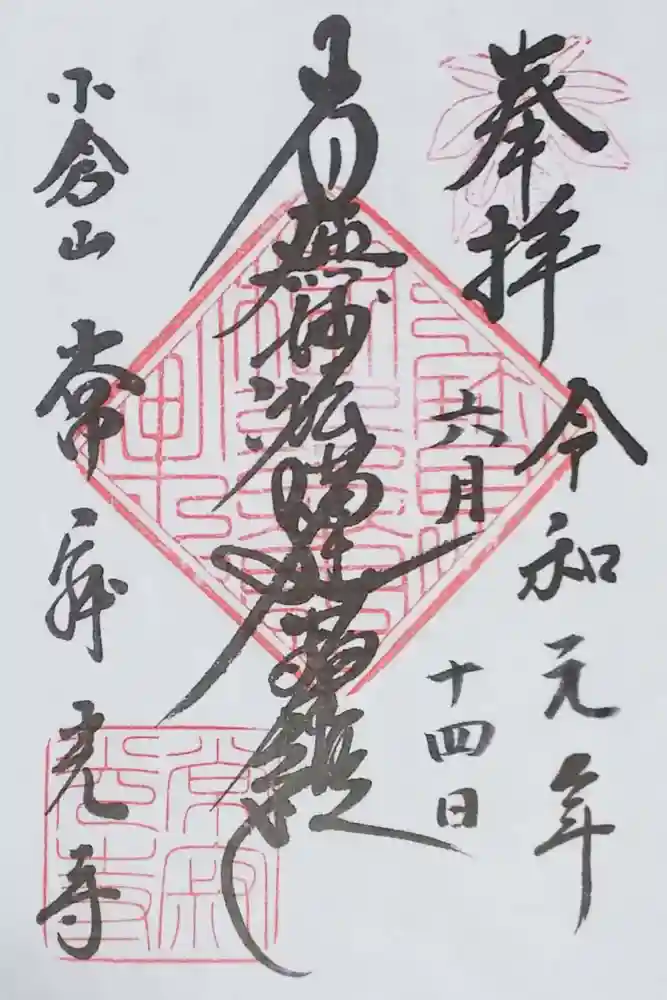 奉拝
令和元年
六月十四日
南無妙法蓮華経
小倉山 常寂光寺
常寂光寺